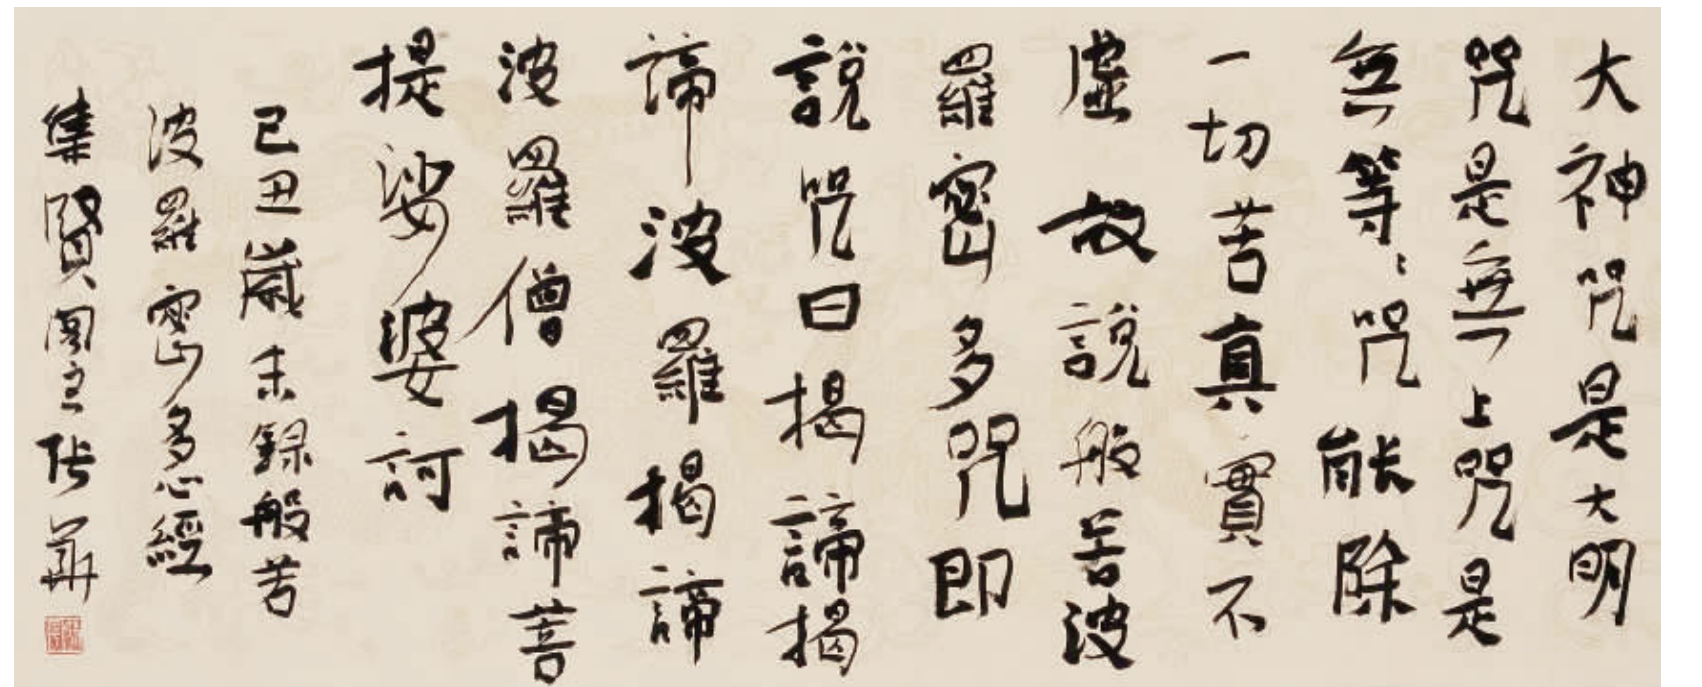 大神咒是大明
咒是無上咒是
無等〻咒能除
一切苦真實不
虛故說般若波
羅密多咒即
說咒曰揭諦揭
諦波羅揭諦
波羅僧揭諦菩
提娑婆訶
己丑歲末錄般若
波羅密多心經
集賢閣主張華